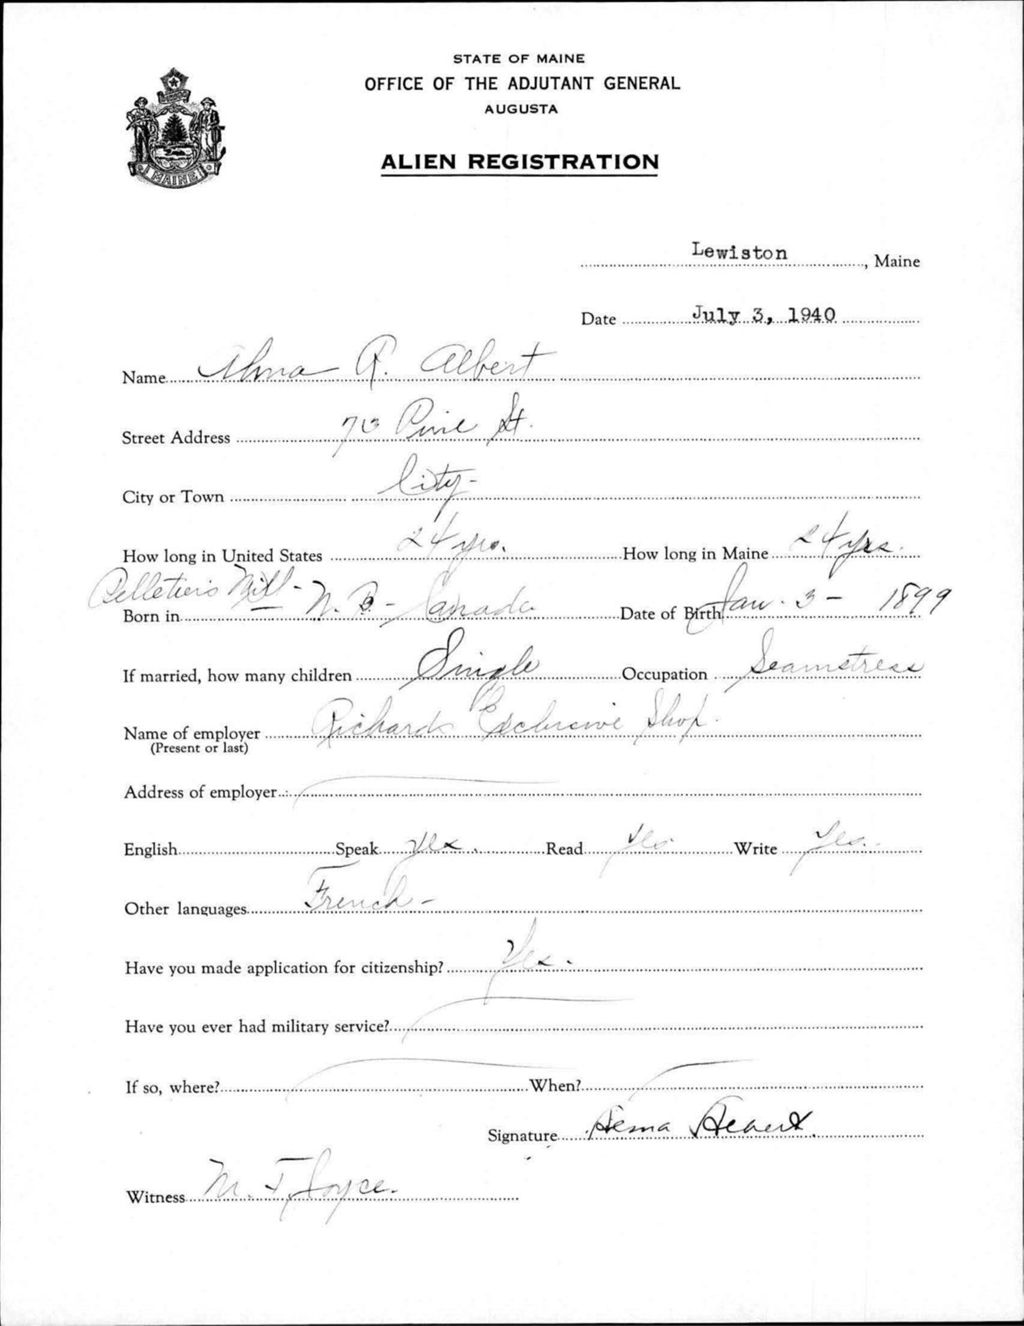 STATE OF MAINE
OFFICE OF THE ADJUTANT GENERAL
AUGUSTA
ALIEN REGISTRATION
MAINE
Lewiston, Maine
Date July 3, 1940
Name Alma R. Albert
Street Address Pine St.
City or Town City-
How long in United States 24 yrs. How long in Maine 24 yrs.
Pelletiers Mill-
Born in N. B- Canada Date of Birth Jan. 3- 1899
If married, how many children Single Occupation Seamstress
Name of employer Richards Exclusive Shop.
(Present or last)
Address of employer
English Speak Yes. Read Yes. Write Yes.
Other languages French-
Have you made application for citizenship? Yes.
Have you ever had military service?
If so, where? When?
Signature
Witness M. F. Joyce.